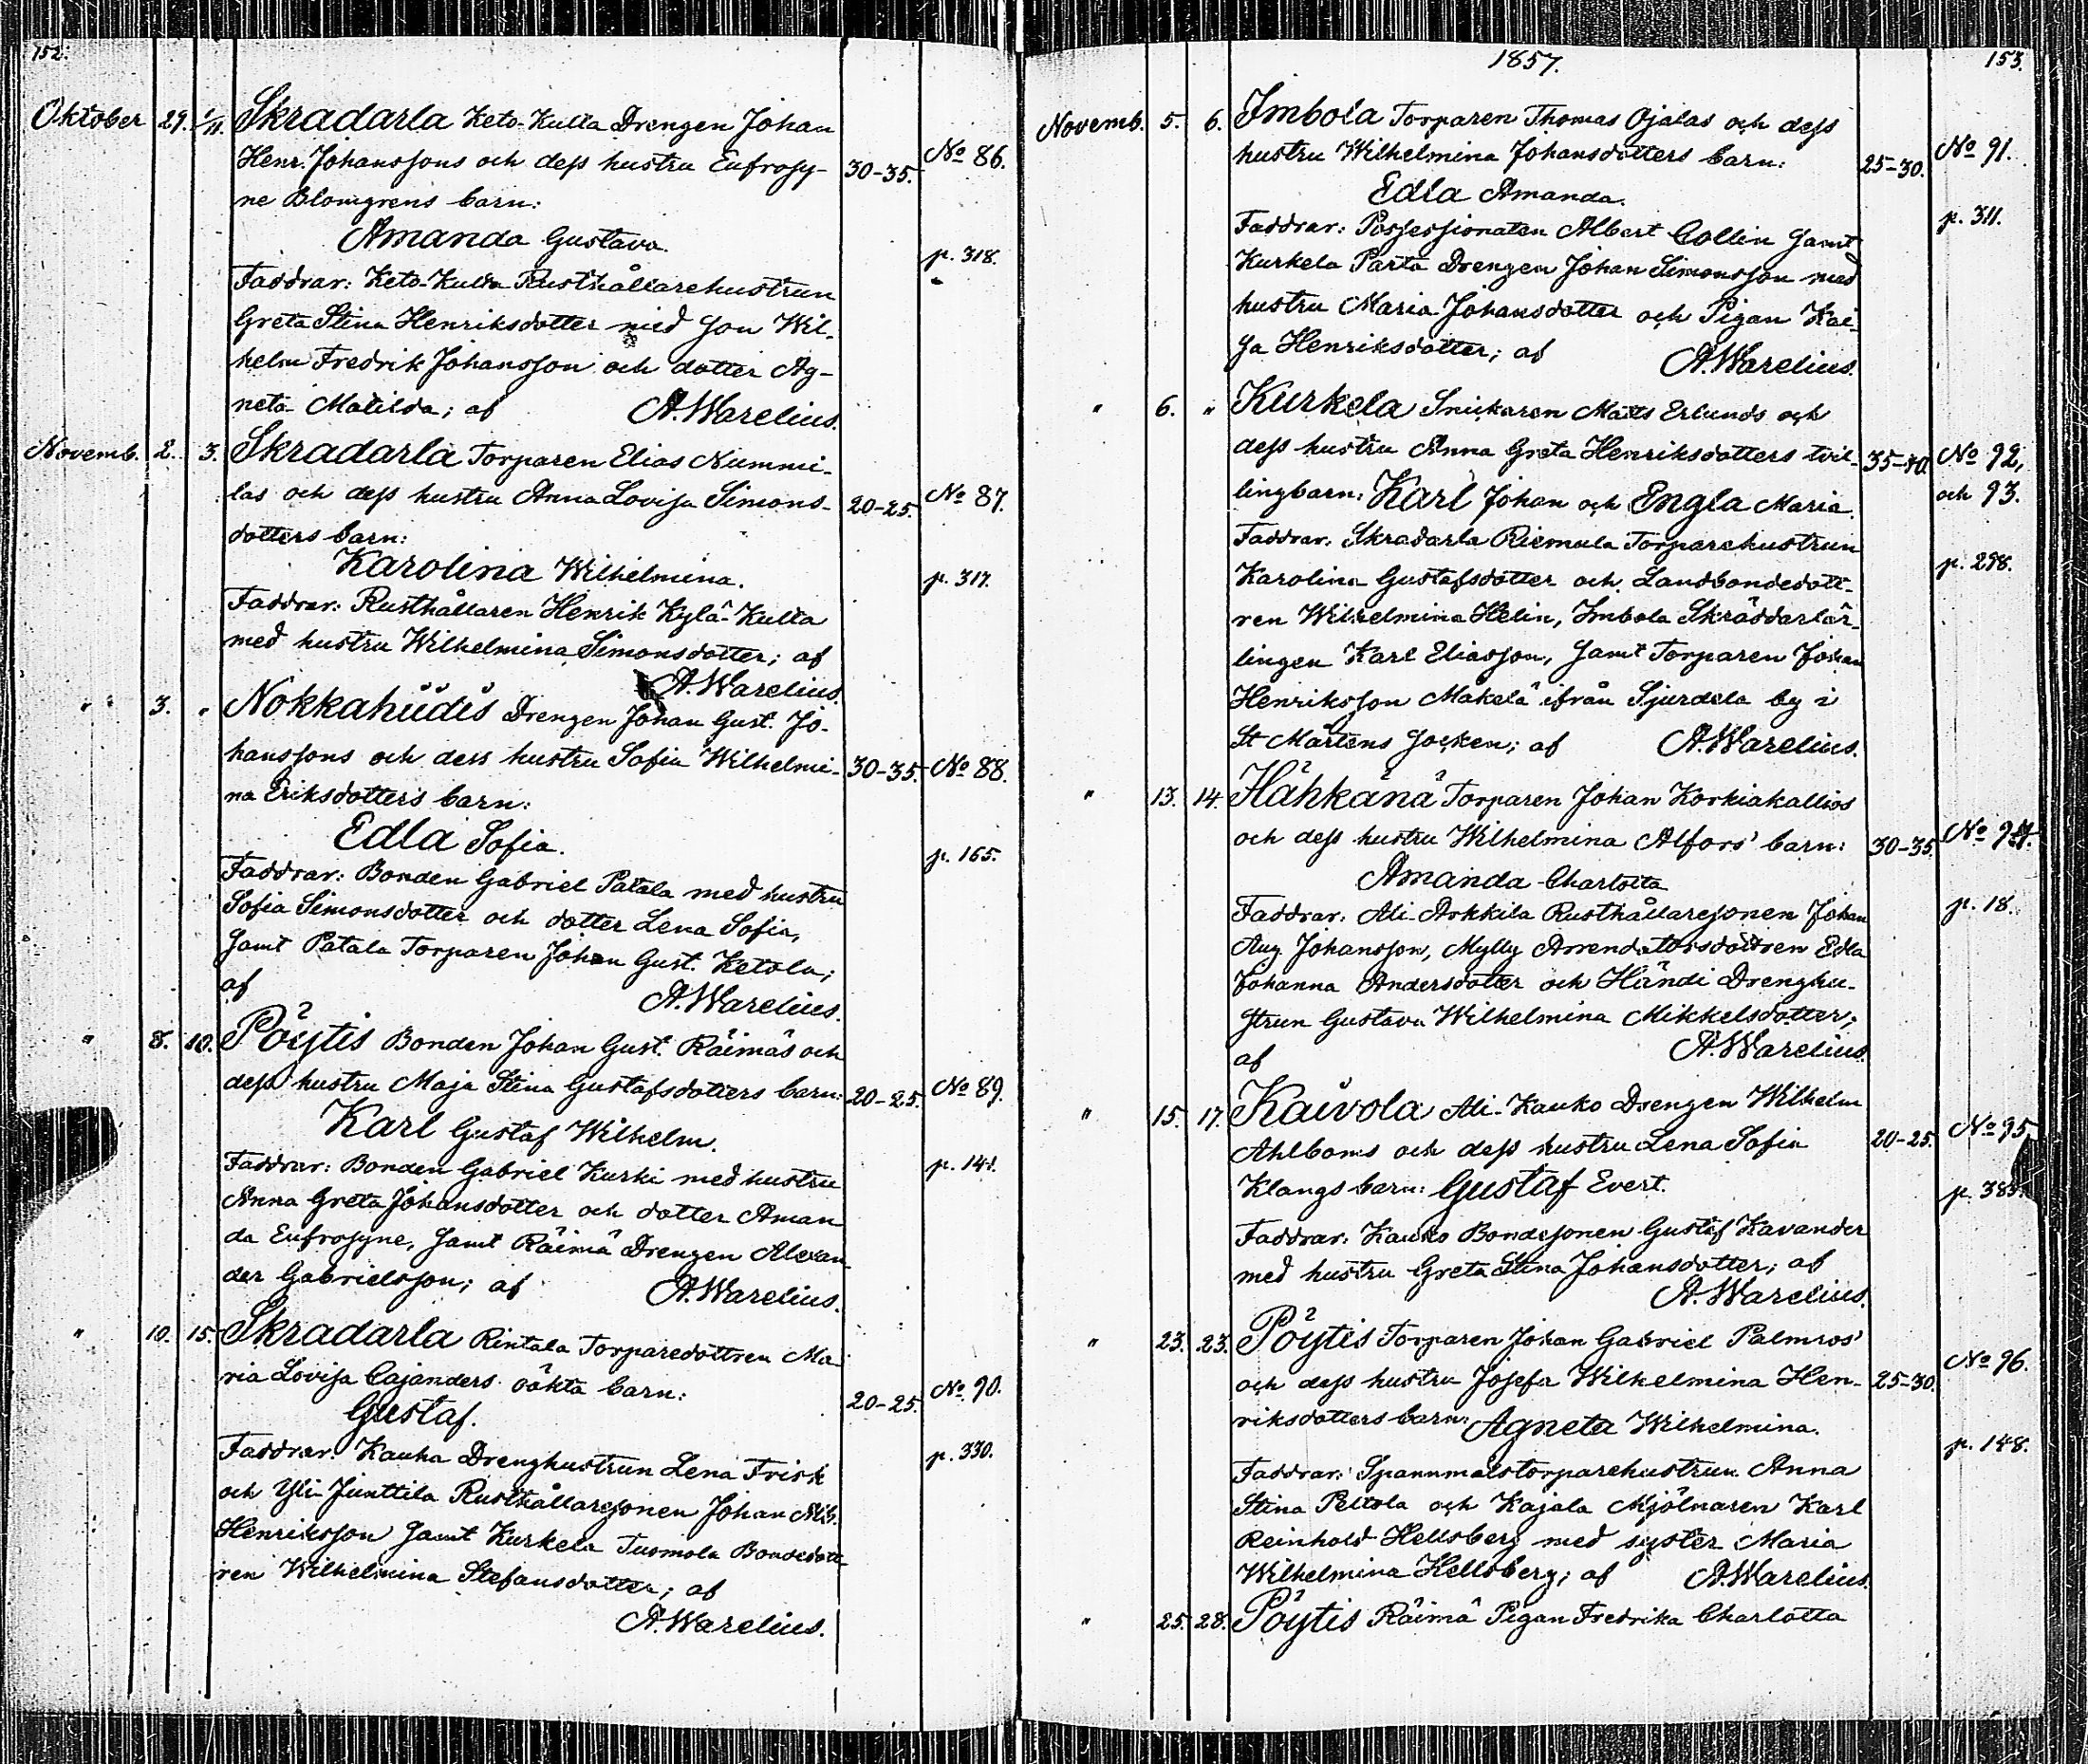 152.
Oktober 29. 1/11. Skradarla Keto-Kulla Drengen Johan
Henr. Johanssons och dess hustru Eufrosy- 30-35. No 86.
ne Blomgrens barn:
Amanda Gustava. p. 318.
Faddrar: Keto-Kulla Rusthållarehustrun
Greta Stina Henriksdotter med son Wil-
helm Fredrik Johansson och dotter Ag-
neta Matilda; af A. Warelius.
Novemb. 2. 3. Skradarla Torparen Elias Nummi-
las och dess hustru Anna Lovisa Simons- 20-25. No 87.
dotters barn:
Karolina Wilhelmina. p. 317.
Faddrar: Rusthållaren Henrik Kylä-Kulla
med hustru Wilhelmina Simonsdotter; af
A. Warelius.
" 3. " Nokkahüdis Drengen Johan Gust. Jo-
hanssons och dess hustru Sofia Wilhelmi- 30-35. No 88.
na Eriksdotters barn:
Edla Sofia. p. 165.
Faddrar: Bonden Gabriel Patala med hustru
Sofia Simonsdotter och dotter Lena Sofia,
samt Patala Torparen Johan Gust. Ketola;
af A. Warelius.
" 8. 10. Pöytis Bonden Johan Gust. Räimäs och
dess hustru Maja Stina Gustafsdotters barn: 20-25. No 89.
Karl Gustaf Wilhelm.
Faddrar: Bonden Gabriel Kurki med hustru p. 141.
Anna Greta Johansdotter och dotter Aman
da Eufrosyne, samt Räimä Drengen Alexan-
der Gabrielsson; af A. Warelius.
" 10. 15. Skradarla Rintala Torparedottren Ma-
ria Lovisa Cajanders oäkta barn: 20-25. No 90.
Gustaf.
Faddrar: Kauha Drenghustrun Lena Frisk p. 330.
och Yli-Junttila Rusthållaresonen Johan Alb.
Henriksson samt Kurkela Tuomola Bondedott-
ren Wilhelmina Stefansdotter; af
A. Warelius.
1857. 153.
Novemb. 5. 6. Imbola Torparen Thomas Ojalas och dess
hustru Wilhelmina Johansdotters barn: 25-30. No 91.
Edla Amanda.
Faddrar: Possessionaten Albert Collin samt p. 311.
Kurkela Parta Drengen Johan Simonsson med
hustru Maria Johansdotter och Pigan Kai-
sa Henriksdotter; af A. Warelius.
" 6. " Kurkela Snickaren Matts Erlunds och
dess hustru Anna Greta Henriksdotters tvil- 35-40. No 92,
lingbarn: Karl Johan och Engla Maria. och 93.
Faddrar: Skradarla Riemula Torparehustrun
Karolina Gustafsdotter och Landbondedott- p. 298.
ren Wilhelmina Helin, Imbola Skräddarlär-
lingen Karl Eliasson, samt Torparen Johan
Henriksson Mäkelä ifrån Sjurdela by i
St Mårtens socken; af A. Warelius.
" 13. 14. Hähkänä Torparen Johan Korkiakallios
och dess hustru Wilhelmina Alfors' barn: 30-35. No 94.
Amanda Charlotta
Faddrar: Ali-Arkkila Rusthållaresonen Johan p. 18.
Aug. Johansson, Mylly Arrendatorsdottren Edla
Johanna Andersdotter och Händi Drenghu-
strun Gustava Wilhelmina Mikkelsdotter;
af A. Warelius.
" 15. 17. Kaivola Ali-Kauko Drengen Wilhelm
Ahlboms och dess hustru Lena Sofia 20-25. No 95.
Klangs barn: Gustaf Evert. p. 383.
Faddrar: Kauko Bondesonen Gustaf Kavander
med hustru Greta Stina Johansdotter; af
A. Warelius.
" 23. 23. Pöytis Torparen Johan Gabriel Palmros'
och dess hustru Josefa Wilhelmina Hen- 25-30. No 96.
riksdotters barn: Agneta Wilhelmina.
Faddrar: Spannmålstorparehustrun Anna p. 148.
Stina Peltola och Kajala Mjölnaren Karl
Reinhold Hellsberg med syster Maria
Wilhelmina Hellsberg; af A. Warelius.
" 25. 28. Pöytis Räimä Pigan Fredrika Charlotta